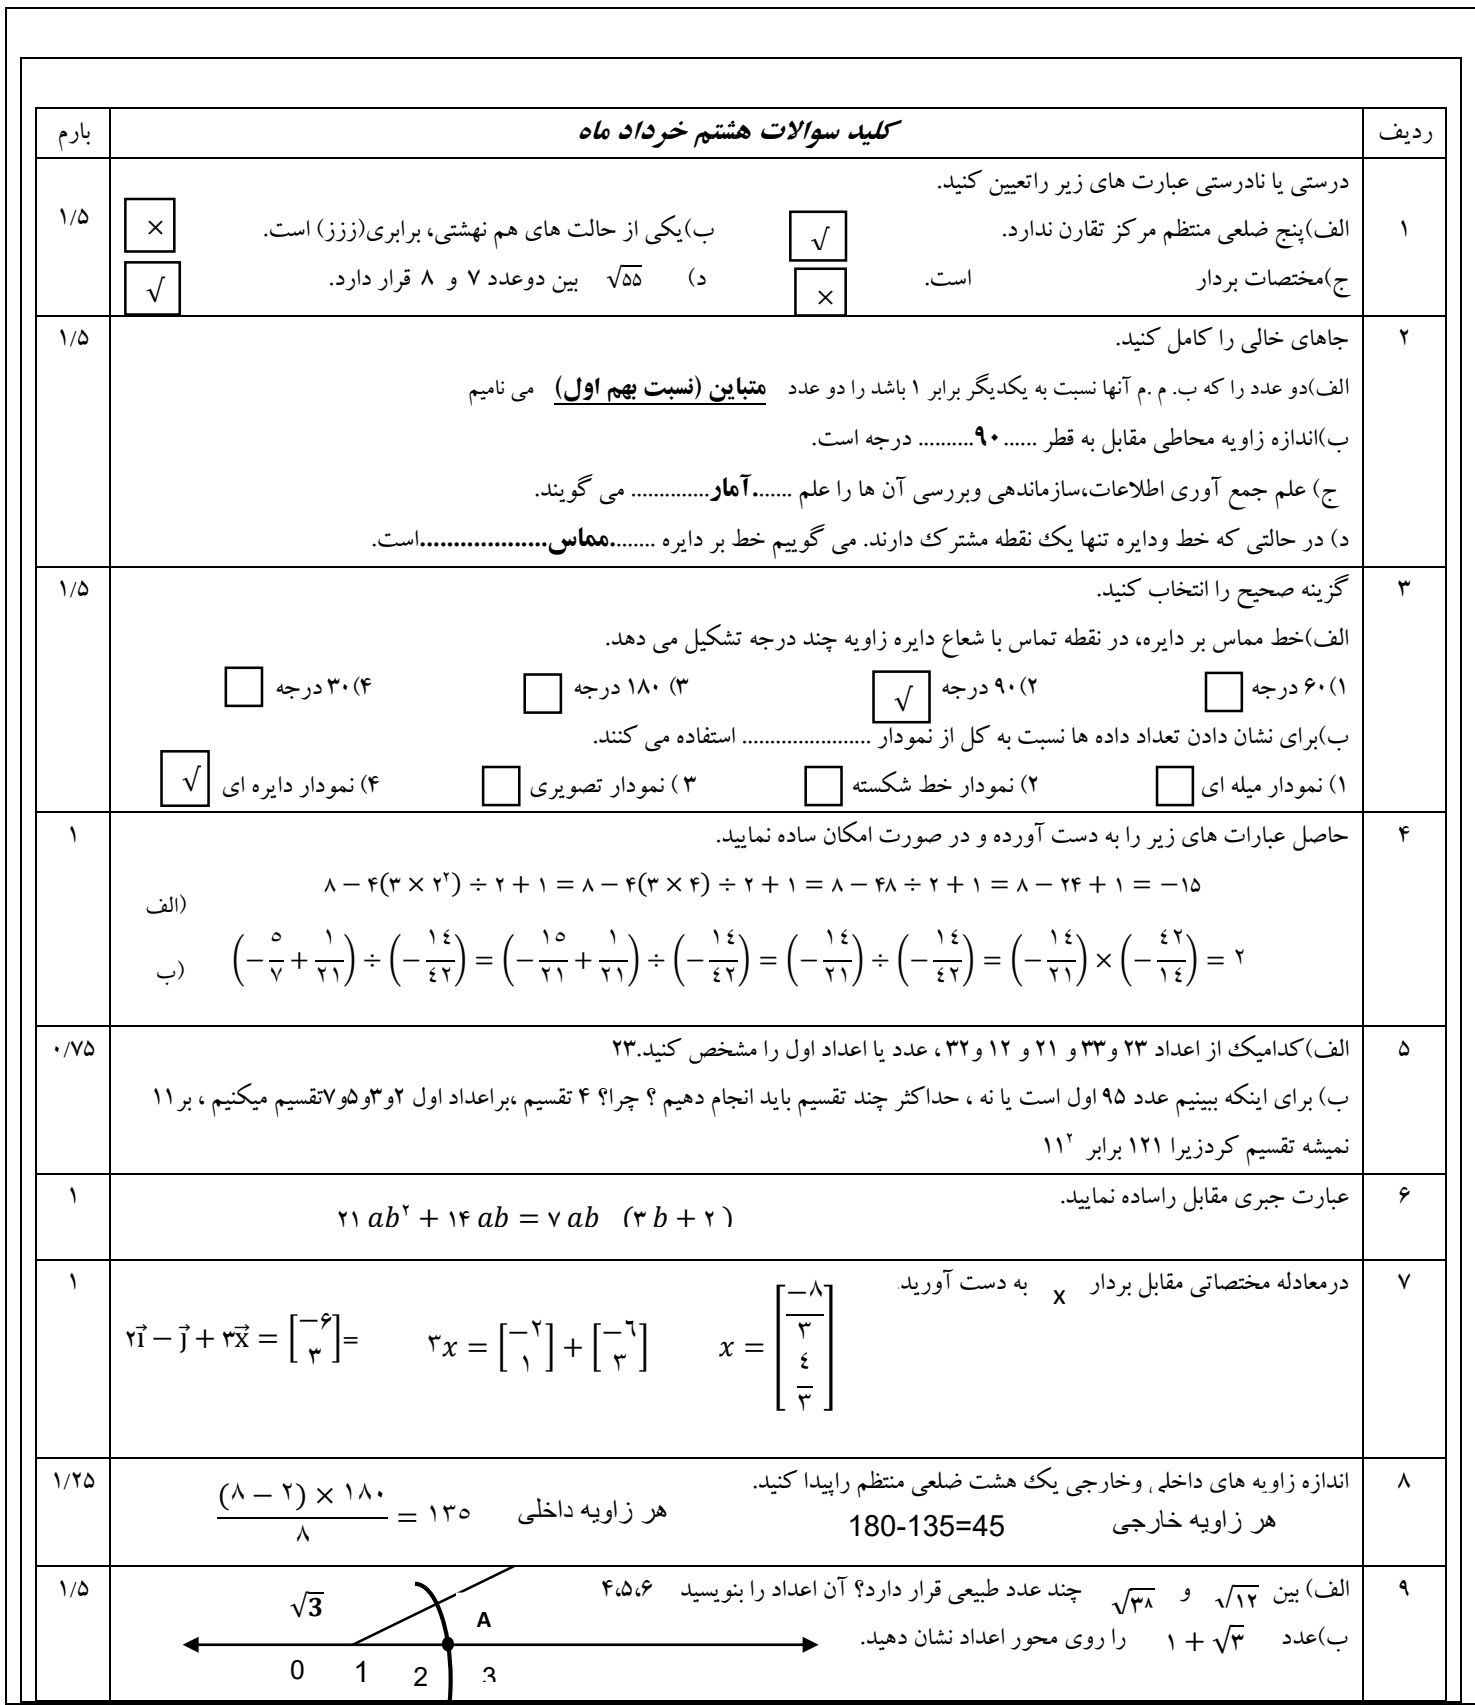 ردیف کلید سوالات هشتم خرداد ماه بارم
۱ درستی یا نادرستی عبارت های زیر راتعیین کنید. ۱/۵
الف)پنج ضلعی منتظم مرکز تقارن ندارد. √ ب)یکی از حالت های هم نهشتی، برابری(ززز) است. ×
ج)مختصات بردار است. × د) √۵۵ بین دوعدد ۷ و ۸ قرار دارد. √
۲ جاهای خالی را کامل کنید. ۱/۵
الف)دو عدد را که ب. م .م آنها نسبت به یکدیگر برابر ۱ باشد را دو عدد متباین (نسبت بهم اول) می نامیم
ب)اندازه زاویه محاطی مقابل به قطر ......۹۰.......... درجه است.
ج) علم جمع آوری اطلاعات،سازماندهی وبررسی آن ها را علم .......آمار.............. می گویند.
د) در حالتی که خط ودایره تنها یک نقطه مشترک دارند. می گوییم خط بر دایره ........مماس...................است.
۳ گزینه صحیح را انتخاب کنید. ۱/۵
الف)خط مماس بر دایره، در نقطه تماس با شعاع دایره زاویه چند درجه تشکیل می دهد.
۱)۶۰ درجه ۲)۹۰ درجه √ ۳) ۱۸۰ درجه ۴)۳۰ درجه
ب)برای نشان دادن تعداد داده ها نسبت به کل از نمودار ....................... استفاده می کنند.
۱) نمودار میله ای ۲) نمودار خط شکسته ۳ ) نمودار تصویری ۴) نمودار دایره ای √
۴ حاصل عبارات های زیر را به دست آورده و در صورت امکان ساده نمایید. ۱
الف) ۸ − ۴(۳ × ۲^۲) ÷ ۲ + ۱ = ۸ − ۴(۳ × ۴) ÷ ۲ + ۱ = ۸ − ۴۸ ÷ ۲ + ۱ = ۸ − ۲۴ + ۱ = −۱۵
ب) (−٥/٧ + ١/٢١) ÷ (−١٤/٤٢) = (−١٥/٢١ + ١/٢١) ÷ (−١٤/٤٢) = (−١٤/٢١) ÷ (−١٤/٤٢) = (−١٤/٢١) × (−٤٢/١٤) = ٢
۵ الف)کدامیک از اعداد ۲۳ و۳۳ و ۲۱ و ۱۲ و۳۲ ، عدد یا اعداد اول را مشخص کنید.۲۳ ۰/۷۵
ب) برای اینکه ببینیم عدد ۹۵ اول است یا نه ، حداکثر چند تقسیم باید انجام دهیم ؟ چرا؟ ۴ تقسیم ،براعداد اول ۲و۳و۵و۷تقسیم میکنیم ، بر۱۱
نمیشه تقسیم کردزیرا ۱۲۱ برابر ۱۱^۲
۶ عبارت جبری مقابل راساده نمایید. ۲۱ ab^۲ + ۱۴ ab = ۷ ab (۳ b + ۲ ) ۱
۷ درمعادله مختصاتی مقابل بردار x به دست آورید. ۱
۲i⃗ − j⃗ + ۳x⃗ = [−۶ ۳]= ۳x = [−٢ ١] + [−٦ ٣] x = [−٨/٣ ٤/٣]
۸ اندازه زاویه های داخلی وخارجی یک هشت ضلعی منتظم راپیدا کنید. ۱/۲۵
هر زاویه داخلی (٨ − ٢) × ١٨٠/٨ = ١٣٥
هر زاویه خارجی 180-135=45
۹ الف) بین √۱۲ و √۳۸ چند عدد طبیعی قرار دارد؟ آن اعداد را بنویسید ۴،۵،۶ ۱/۵
ب)عدد ۱ + √۳ را روی محور اعداد نشان دهید.
√3 A
0 1 2 3